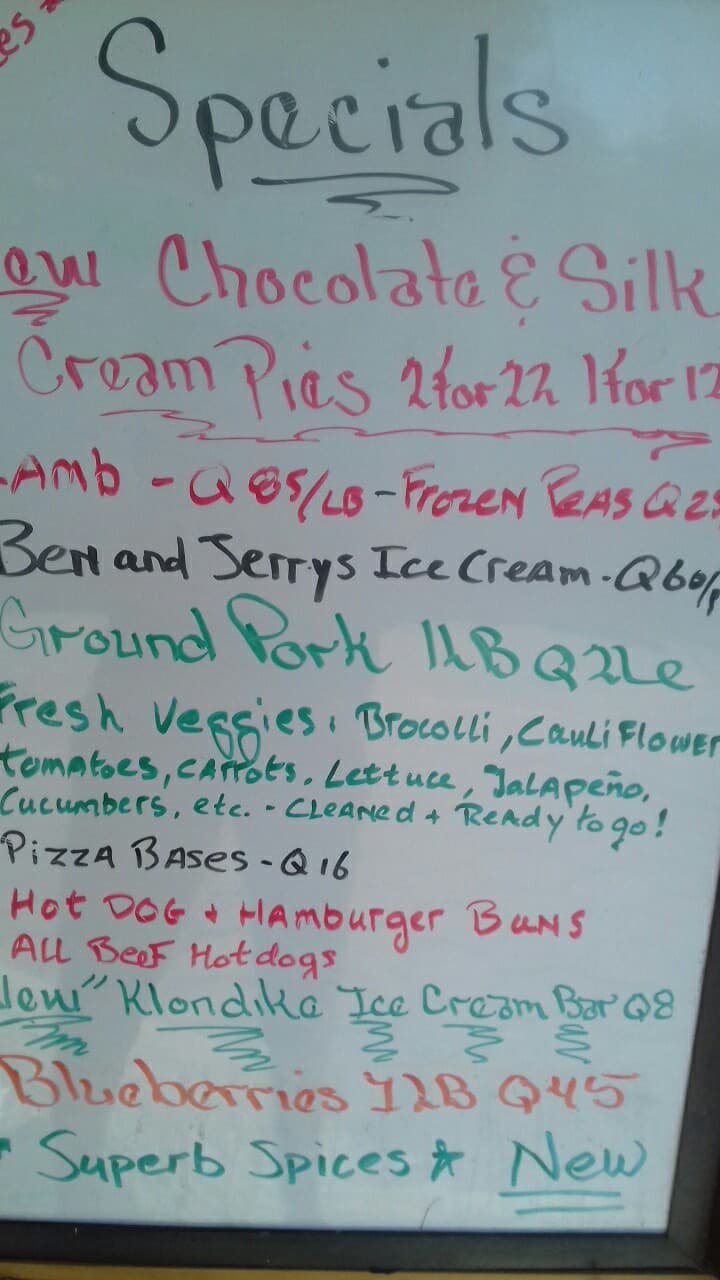 es *
Specials
ew Chocolate & Silk
Cream Pies 2 for 22 1 for 12
Amb - Q 85/LB - FROZEN PEAS Q2
Ben and Jerrys Ice Cream - Q60/p
Ground Pork 1LB
Fresh Veggies: Brocolli, Cauliflower
tomatoes, carrots, Lettuce, Jalapeño,
Cucumbers, etc. - Cleaned + Ready to go!
Pizza Bases - Q16
Hot Dog + Hamburger Buns
All Beef Hotdogs
New" Klondike Ice Cream Bar Q8
Blueberries 1LB Q45
* Superb Spices * New